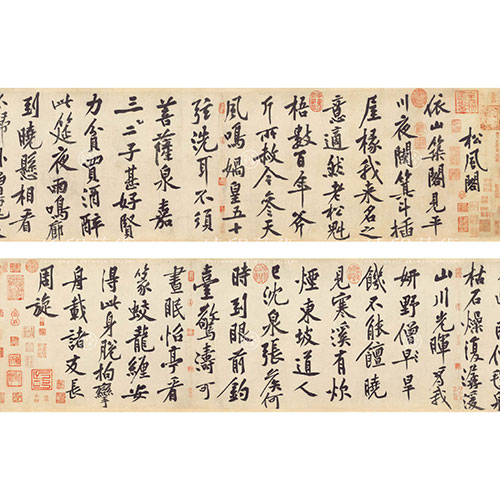 松風閣
依山築閣見平
川夜闌箕斗插
屋椽我來名之
意適然老松魁
梧數百年斧
斤所赦今參天
風鳴媧皇五十
弦洗耳不須
菩薩泉嘉
三二子甚好賢
力貧買酒醉
此筵夜雨鳴廊
到曉懸相看
枯石燥復潺湲
山川光暉為我
妍野僧早旱
饑不能饘曉
見寒溪有炊
煙東坡道人
已沈泉張侯何
時到眼前釣
臺驚濤可
晝眠怡亭看
篆蛟龍纏安
得此身脫拘攣
舟載諸友長
周旋